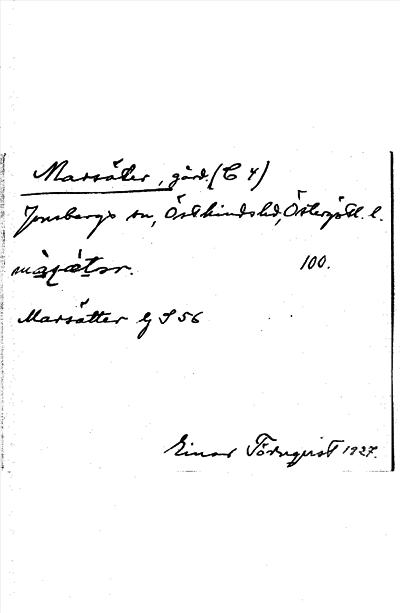 Marsäter, gård. (C 4)
Jonsbergs sn, Östkinds hd, Östergötl. l.
màṣætər. 100.
Marsätter Gj S 56
Einar Törnqvist 1927.